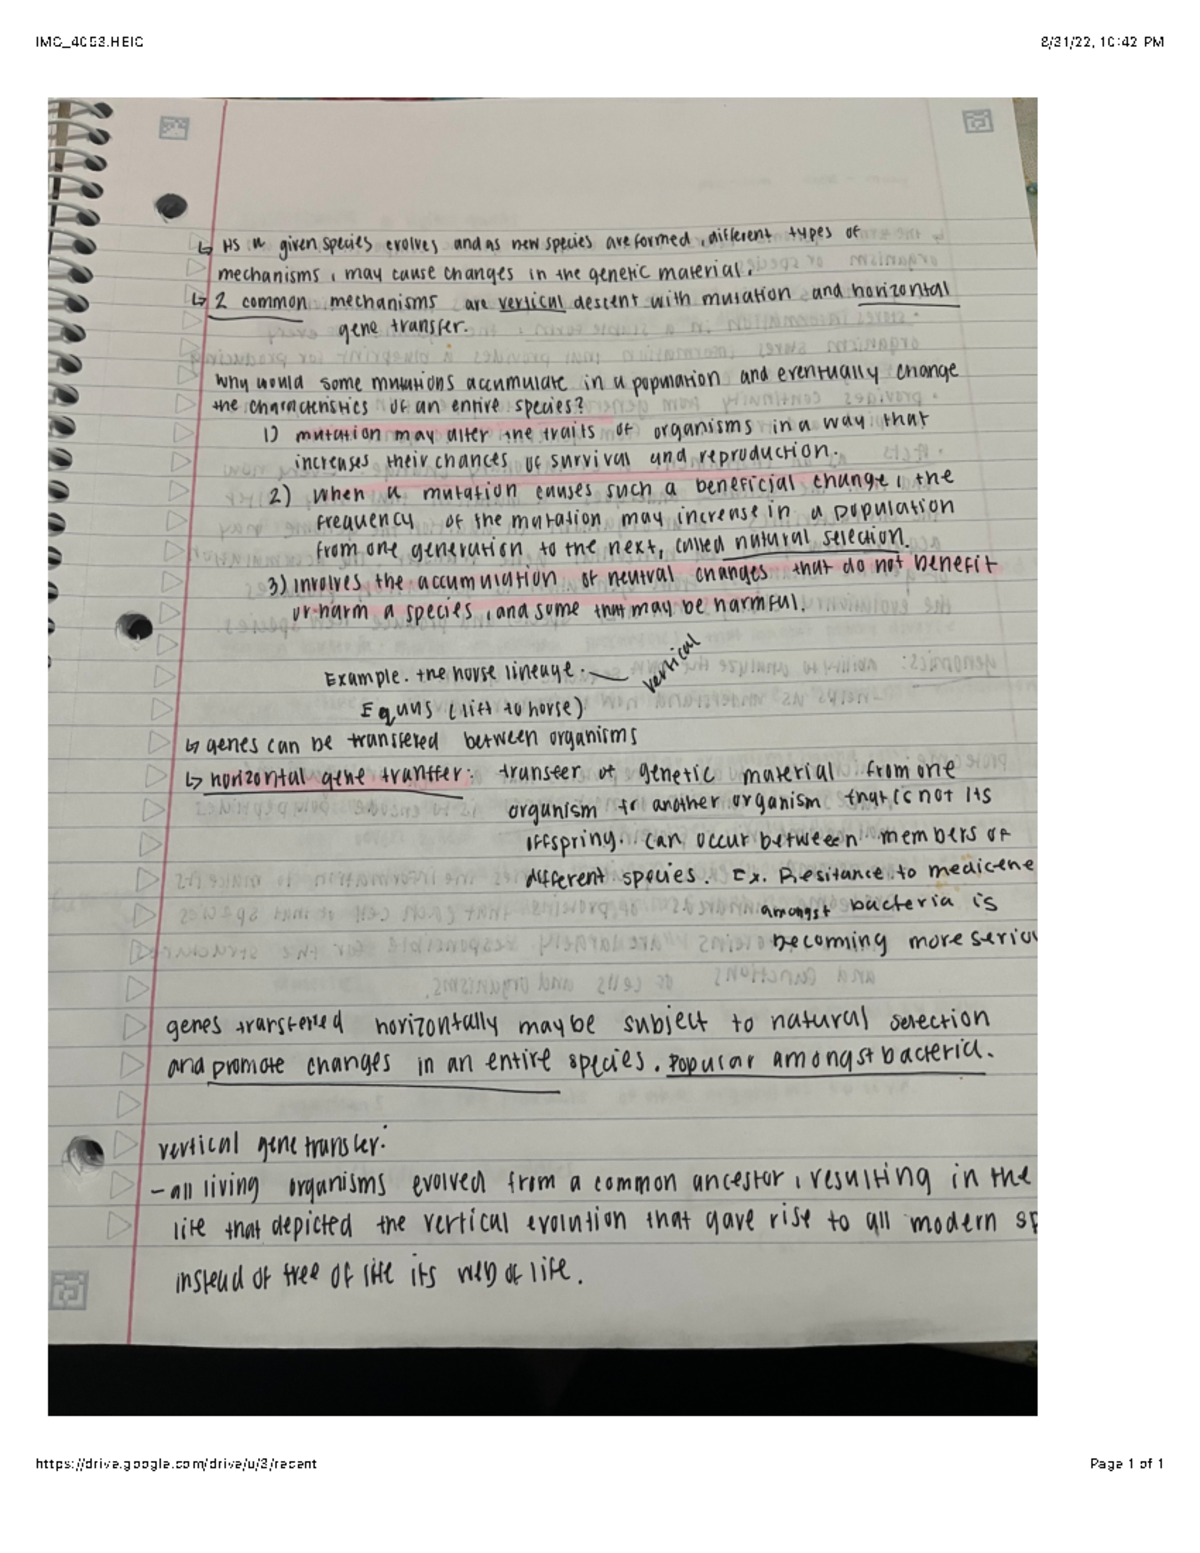 IMG_4053.HEIC
8/31/22, 10:42 PM
↳ As a given species evolves and as new species are formed, different types of
mechanisms, may cause changes in the genetic material.
↳ 2 common mechanisms are vertical descent with mutation and horizontal
gene transfer.
Why would some mutations accumulate in a population and eventually change
the characteristics of an entire species?
1) mutation may alter the traits of organisms in a way that
increases their chances of survival and reproduction.
2) When a mutation causes such a beneficial change, the
frequency of the mutation may increase in a population
from one generation to the next, called natural selection.
3) involves the accumulation of neutral changes that do not benefit
or harm a species, and some that may be harmful.
Example. the horse lineage. vertical
Equus ( to horse)
↳ genes can be transfered between organisms
↳ horizontal gene transfer: transfer of genetic material from one
organism to another organism that is not its
offspring. can occur between members of
different species. Ex. Resitance to medicene
amongst bacteria is
becoming more seriou
genes transferred horizontally may be subject to natural selection
and promote changes in an entire species. Popular amongst bacteria.
vertical gene transfer:
- all living organisms evolved from a common ancestor, resulting in the
life that depicted the vertical evolution that gave rise to all modern sp
instead of tree of life its web of life.
https://drive.google.com/drive/u/3/recent
Page 1 of 1